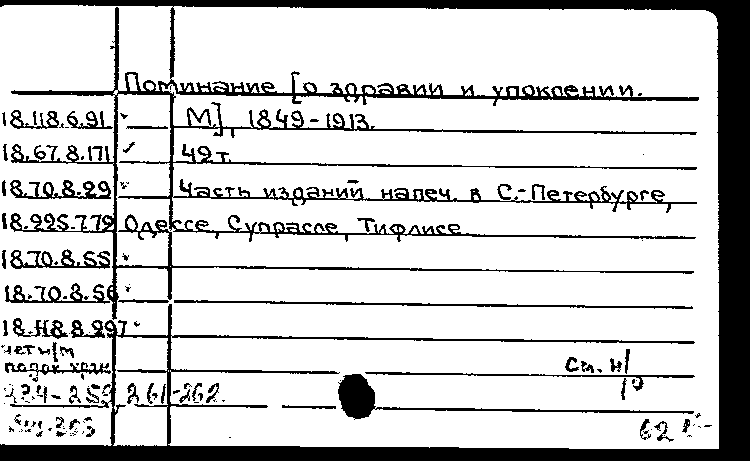 Поминание [о здравии и упокоении.
18.118.6.91 М.], 1849-1913.
18.67.8.171 ✓ 49 т.
18.70.8.29 Часть изданий напеч. в С.-Петербурге,
18.225.7.79 Одессе, Супрасле, Тифлисе
18.70.8.55
18.70.8.56
18.118.8.297
чет н/м
подок. хран. См. н/
234-259 261-262. 10
62